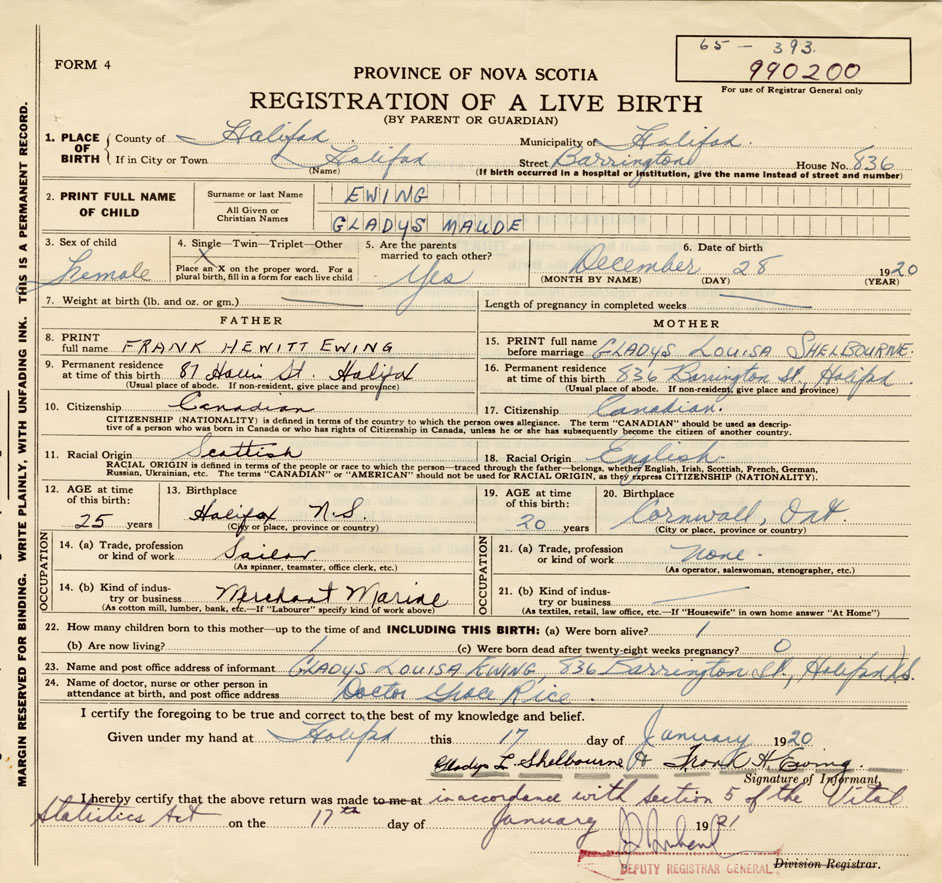 65 - 393.
990200
For use of Registrar General only
FORM 4
PROVINCE OF NOVA SCOTIA
REGISTRATION OF A LIVE BIRTH
(BY PARENT OR GUARDIAN)
MARGIN RESERVED FOR BINDING. WRITE PLAINLY, WITH UNFADING INK. THIS IS A PERMANENT RECORD.
1. PLACE OF BIRTH
County of Halifax
Municipality of Halifax.
If in City or Town Halifax
(Name)
Street Barrington House No. 836
(If birth occurred in a hospital or institution, give the name instead of street and number)
2. PRINT FULL NAME OF CHILD
Surname or last Name EWING
All Given or Christian Names GLADYS MAUDE
3. Sex of child
Female
4. Single—Twin—Triplet—Other
X
Place an X on the proper word. For a plural birth, fill in a form for each live child
5. Are the parents married to each other?
Yes
6. Date of birth
December 28 1920
(MONTH BY NAME) (DAY) (YEAR)
7. Weight at birth (lb. and oz. or gm.)
Length of pregnancy in completed weeks
FATHER
8. PRINT full name FRANK HEWITT EWING
9. Permanent residence at time of this birth 87 Hollis St. Halifax
(Usual place of abode. If non-resident, give place and province)
MOTHER
15. PRINT full name before marriage GLADYS LOUISA SHELBOURNE.
16. Permanent residence at time of this birth 836 Barrington St., Halifax.
(Usual place of abode. If non-resident, give place and province)
10. Citizenship Canadian
17. Citizenship Canadian.
CITIZENSHIP (NATIONALITY) is defined in terms of the country to which the person owes allegiance. The term "CANADIAN" should be used as descrip-
tive of a person who was born in Canada or who has rights of Citizenship in Canada, unless he or she has subsequently become the citizen of another country.
11. Racial Origin Scottish
18. Racial Origin English.
RACIAL ORIGIN is defined in terms of the people or race to which the person—traced through the father—belongs, whether English, Irish, Scottish, French, German,
Russian, Ukrainian, etc. The terms "CANADIAN" or "AMERICAN" should not be used for RACIAL ORIGIN, as they express CITIZENSHIP (NATIONALITY).
12. AGE at time of this birth:
25 years
13. Birthplace
Halifax N.S
(City or place, province or country)
19. AGE at time of this birth:
20 years
20. Birthplace
Cornwall, Ont.
(City or place, province or country)
OCCUPATION
14. (a) Trade, profession or kind of work Sailor
(As spinner, teamster, office clerk, etc.)
14. (b) Kind of industry or business Merchant Marine
(As cotton mill, lumber, bank, etc.—If "Labourer" specify kind of work above)
OCCUPATION
21. (a) Trade, profession or kind of work none.
(As operator, saleswoman, stenographer, etc.)
21. (b) Kind of indus-
try or business
(As textiles, retail, law office, etc.—If "Housewife" in own home answer "At Home")
22. How many children born to this mother—up to the time of and INCLUDING THIS BIRTH: (a) Were born alive? 1
(b) Are now living? 1 (c) Were born dead after twenty-eight weeks pregnancy? 0
23. Name and post office address of informant GLADYS LOUISA EWING, 836 Barrington St., Halifax N.S.
24. Name of doctor, nurse or other person in attendance at birth, and post office address Doctor Grace Rice.
I certify the foregoing to be true and correct to the best of my knowledge and belief.
Given under my hand at Halifax this 17 day of January 1920
Gladys L. Shelbourne & Frank H Ewing.
Signature of Informant,
I hereby certify that the above return was made to me at in accordance with section 5 of the Vital
Statistics Act on the 17th day of January 1921
DEPUTY REGISTRAR GENERAL
Division Registrar.